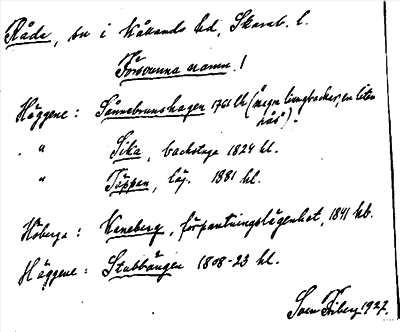 Råda, sn i Kållands hd, Skarab. l.
Försvunna namn!
Häggene: Sånnebrunshagen 1761 Ll. (några ljungbackar, en liten
hås).
" Sika, backstuga 1824 hl.
" Täppan, läg. 1881 hl.
Höberga: Kaneberg, förpantningslägenhet, 1841 hb.
Häggene: Stubbängen 1808-23 hl.
Sven Friberg 1927.